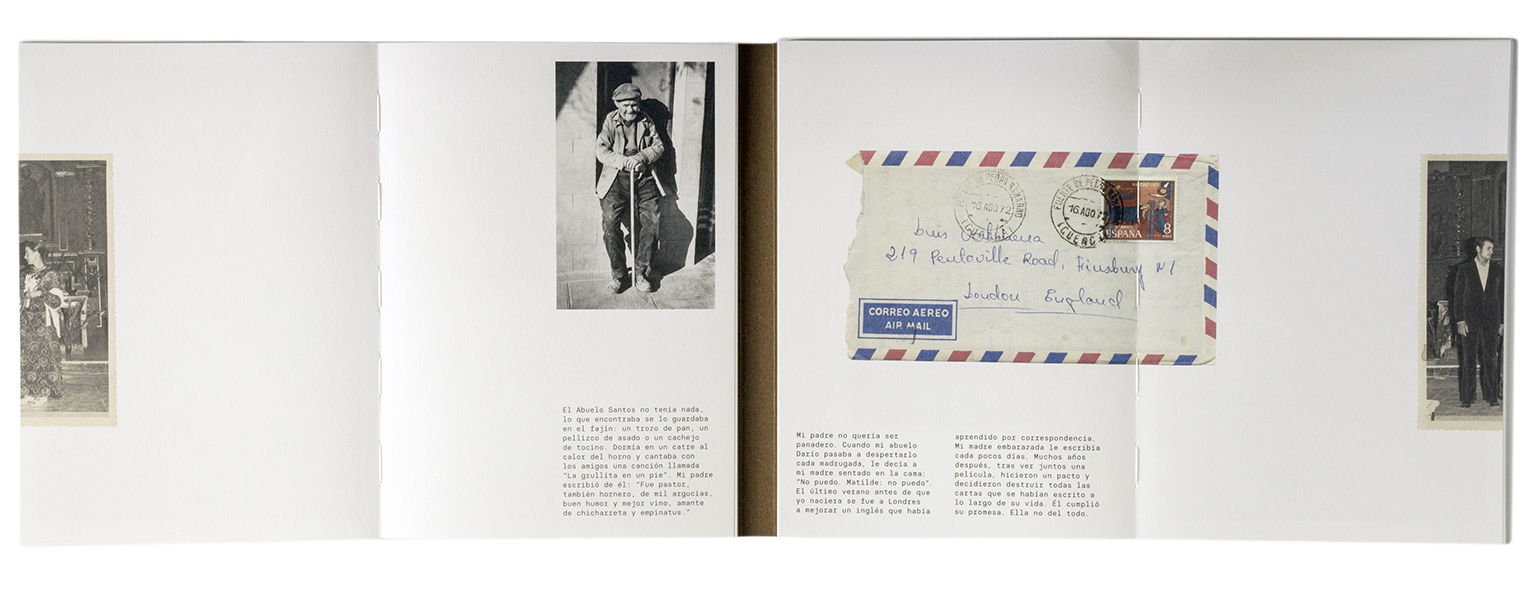 El Abuelo Santos no tenía nada,
lo que encontraba se lo guardaba
en el fajín: un trozo de pan, un
pellizco de asado o un cachejo
de tocino. Dormía en un catre al
calor del horno y cantaba con
los amigos una canción llamada
"La grullita en un pie". Mi padre
escribió de él: "Fue pastor,
también hornero, de mil argucias,
buen humor y mejor vino, amante
de chicharreta y empinatus."
16 AGO 72
FUENTE DE PEDRO NAHARRO
16 AGO 7
ESPAÑA 8
Luis
219 Pentoville Road, Finsbury N1
London England
CORREO AEREO
AIR MAIL
Mi padre no quería ser
panadero. Cuando mi abuelo
Darío pasaba a despertarlo
cada madrugada, le decía a
mi madre sentado en la cama:
"No puedo. Matilde: no puedo".
El último verano antes de que
yo naciera se fue a Londres
a mejorar un inglés que había
aprendido por correspondencia.
Mi madre embarazada le escribía
cada pocos días. Muchos años
después, tras ver juntos una
película, hicieron un pacto y
decidieron destruir todas las
cartas que se habían escrito a
lo largo de su vida. Él cumplió
su promesa. Ella no del todo.